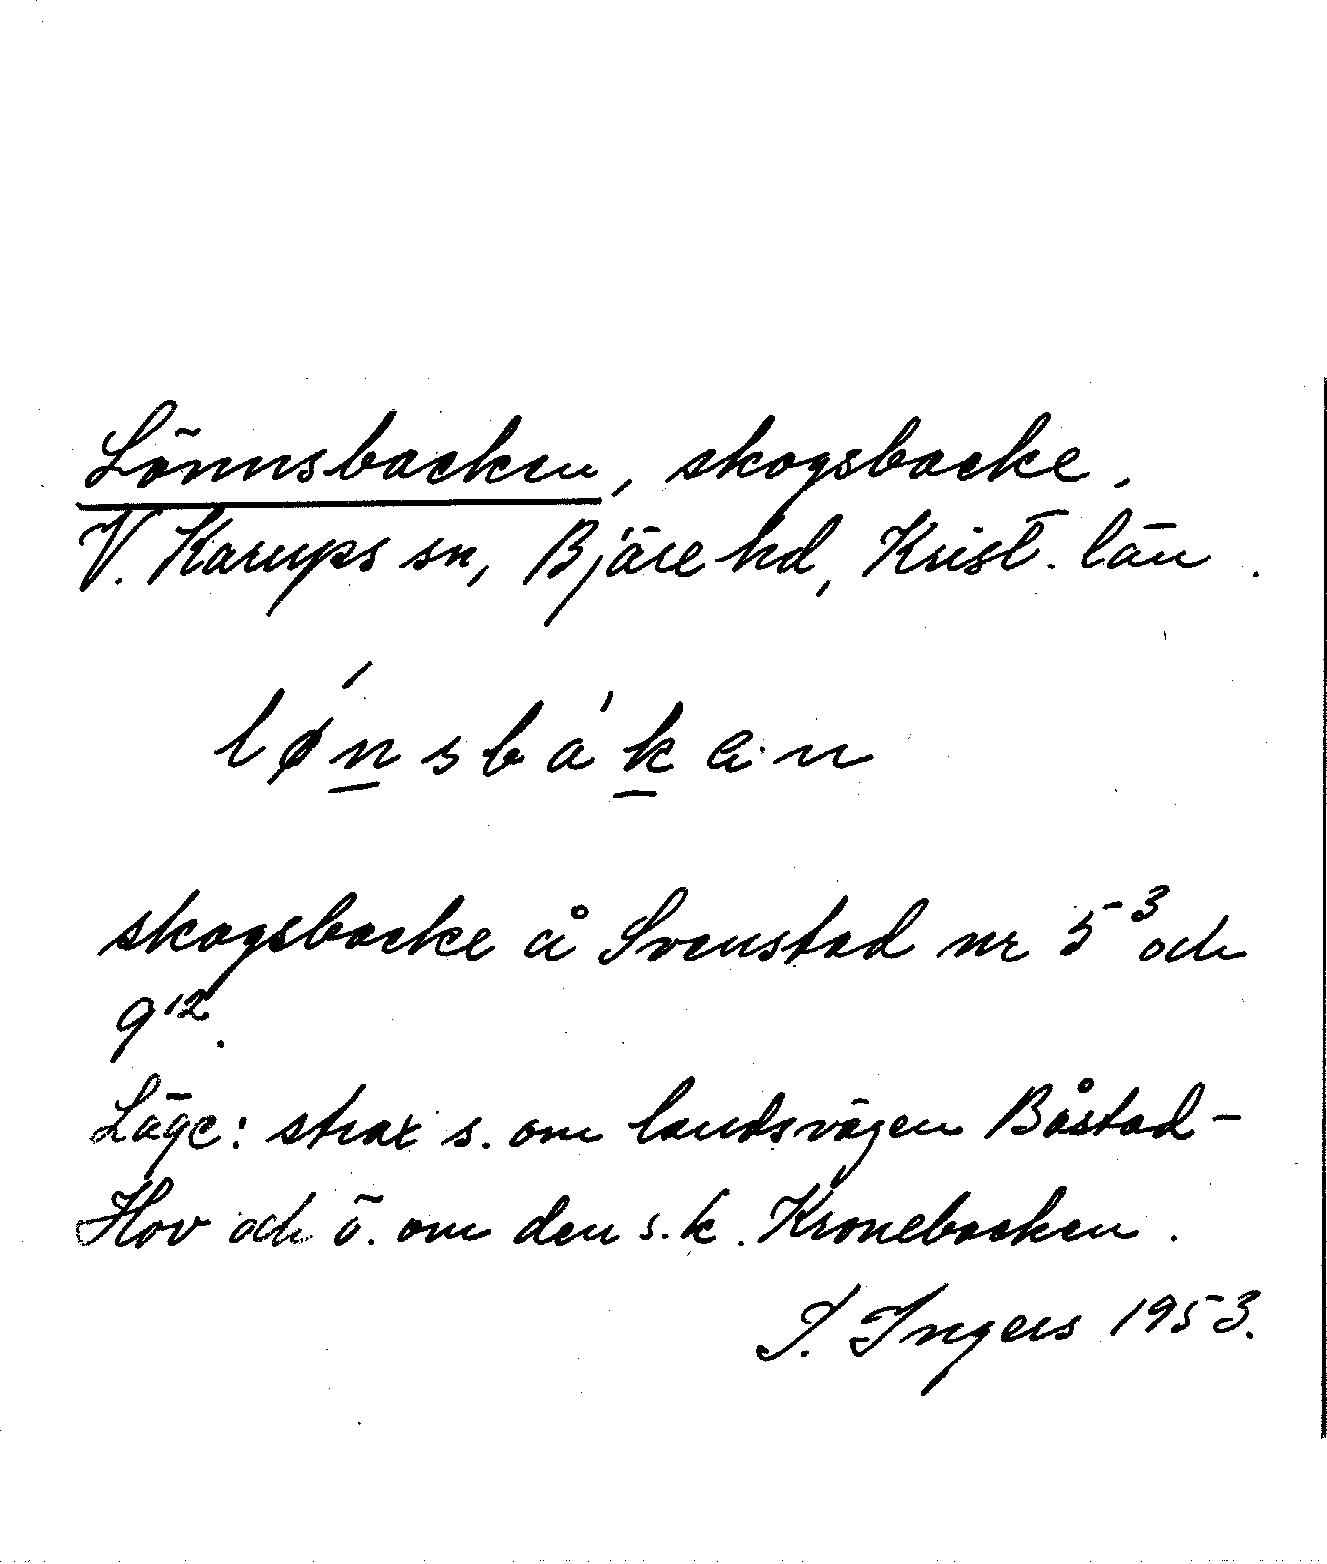 Lönnsbacken, skogsbacke.
V. Karups sn, Bjäre hd, Krist. län.
lǿnsbákan
skogsbacke å Svenstad nr 5³ och
9¹².
Läge: strax s. om landsvägen Båstad-
Hov och ö. om den s.k. Kronebacken.
I. Ingers 1953.